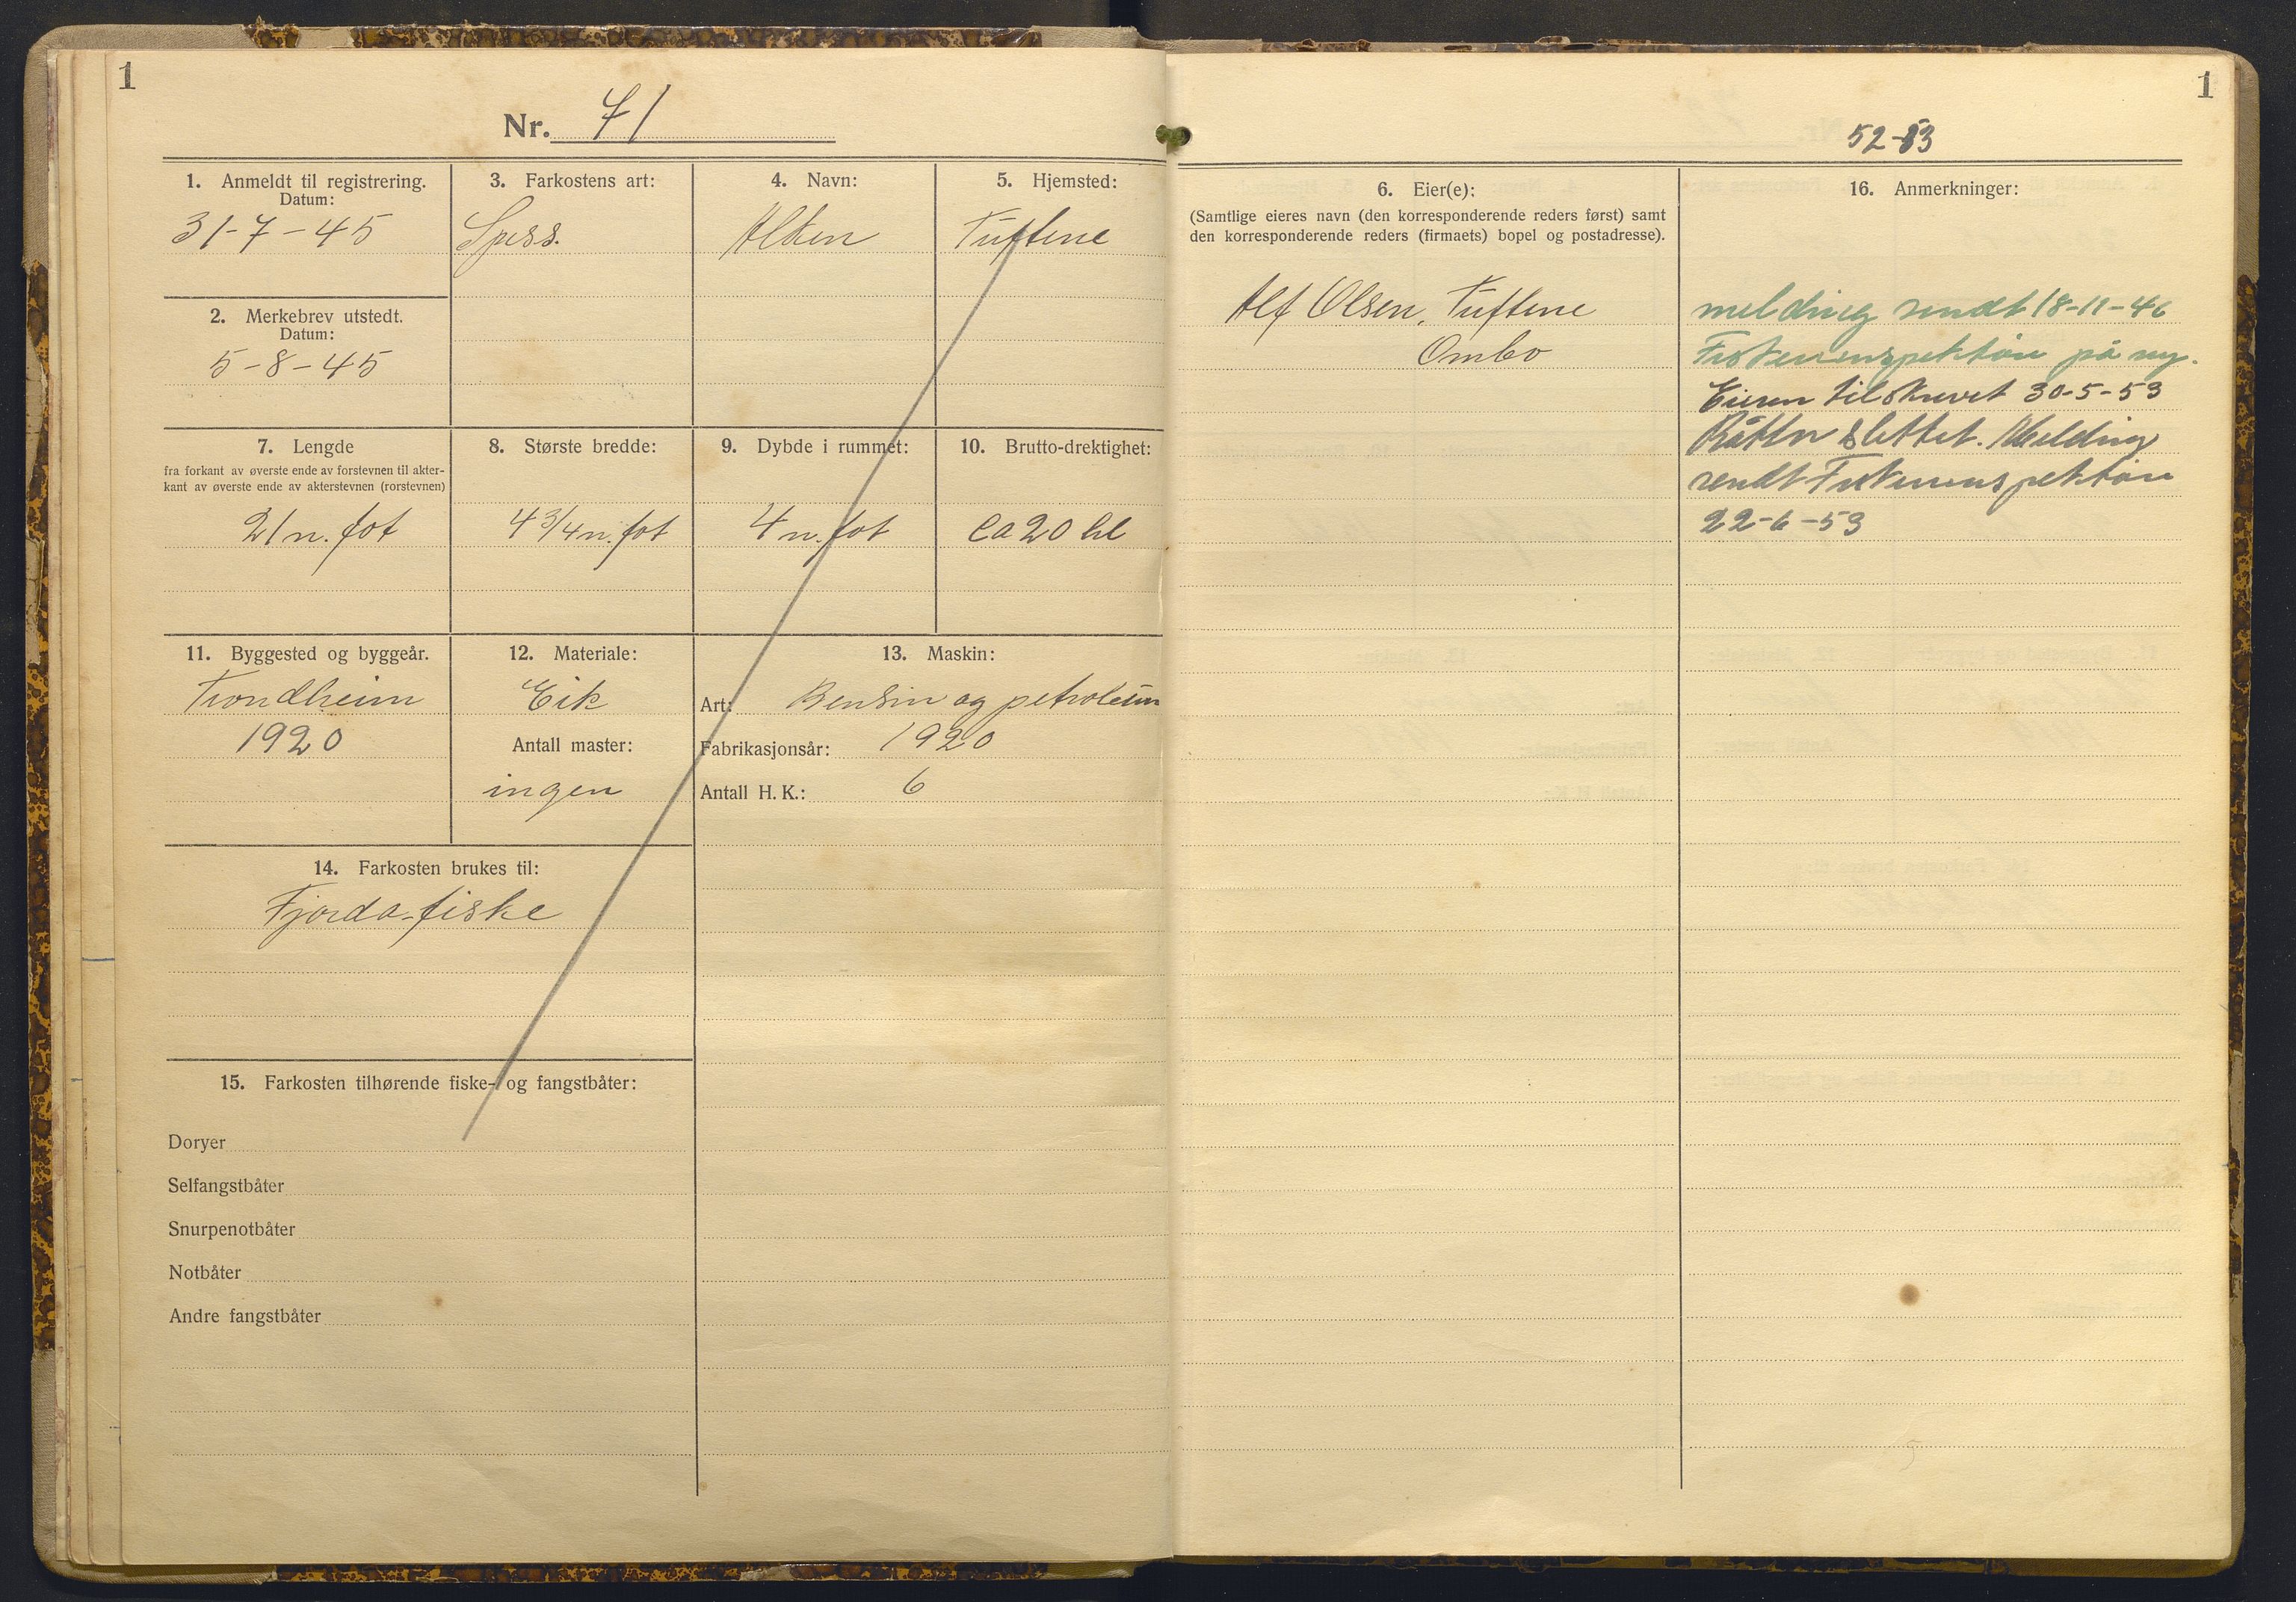 1
Nr. 71
1. Anmeldt til registrering.
Datum:
31-7-45
2. Merkebrev utstedt.
Datum:
5-8-45
3. Farkostens art:
Spiss.
4. Navn:
Alken
5. Hjemsted:
Tuftene
7. Lengde
fra forkant av øverste ende av forstevnen til akter-
kant av øverste ende av akterstevnen (rorstevnen)
21 n. fot
8. Største bredde:
4 3/4 n. fot
9. Dybde i rummet:
4 n. fot
10. Brutto-drektighet:
ca 20 hl
11. Byggested og byggeår.
Trondheim
1920
12. Materiale:
Eik
Antall master:
ingen
13. Maskin:
Art: Bensin og petroleum
Fabrikasjonsår: 1920
Antall H. K.: 6
14. Farkosten brukes til:
Fjorda-fiske
15. Farkosten tilhørende fiske- og fangstbåter:
Doryer
Selfangstbåter
Snurpenotbåter
Notbåter
Andre fangstbåter
1
52-53
6. Eier(e):
(Samtlige eieres navn (den korresponderende reders først) samt
den korresponderende reders (firmaets) bopel og postadresse).
Alf Olsen, Tuftene
Ombo
16. Anmerkninger:
melding sendt 18-11-46
Fiskeriinspektøren på ny.
Eieren tilskrevet 30-5-53
Båten slettet. Melding
sendt Fiskeriinspektøren
22-6-53